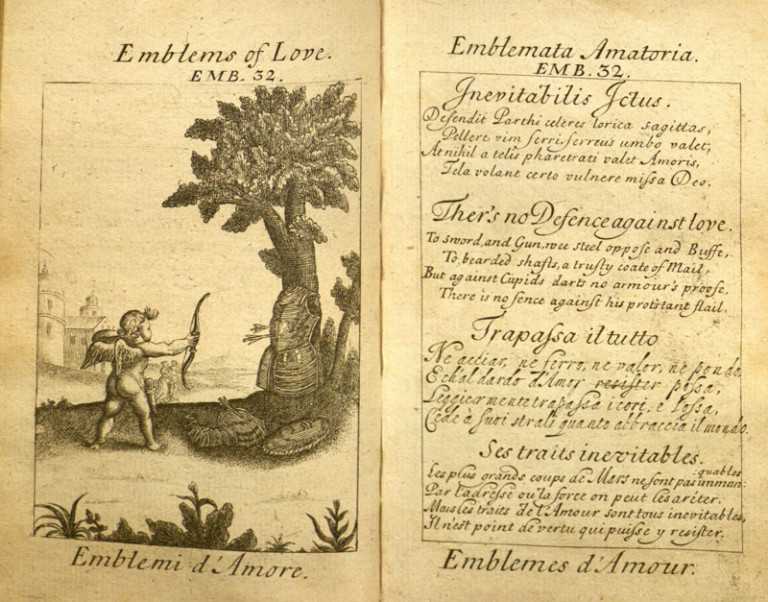 Emblems of Love.
EMB. 32.
Emblemi d'Amore.
Emblemata Amatoria.
EMB. 32.
Inevitabilis Ictus.
Defendit Parthi celeres lorica sagittas,
Pellere vim ferri ferreus umbo valet;
At nihil a telis pharetrati valet Amoris,
Tela volant certo vulnere missa Deo.
Ther's no Defence against love.
To sword, and Gun, wee steel oppose and Buffe,
To, bearded shafts, a trusty coate of Mail,
But against Cupids darts no armour's proofe,
There is no fence against his protstant flail.
Trapassa il tutto
Ne acciar, ne ferro, ne valor, ne pondo,
E ch'al dardo d'Amor resister possa,
Leggiermente trapassa i cori, e l'ossa,
Cede à suoi strali quanto abbraccia il mondo.
Ses traits inevitables.
Les plus grands coups de Mars ne sont pas imman:
:quables
Par l'adresse ou la force on peut les arêter.
Mais les traits de l'Amour sont tous inevitables,
Il n'est point de vertu qui puisse y resister.
Emblemes d'Amour.